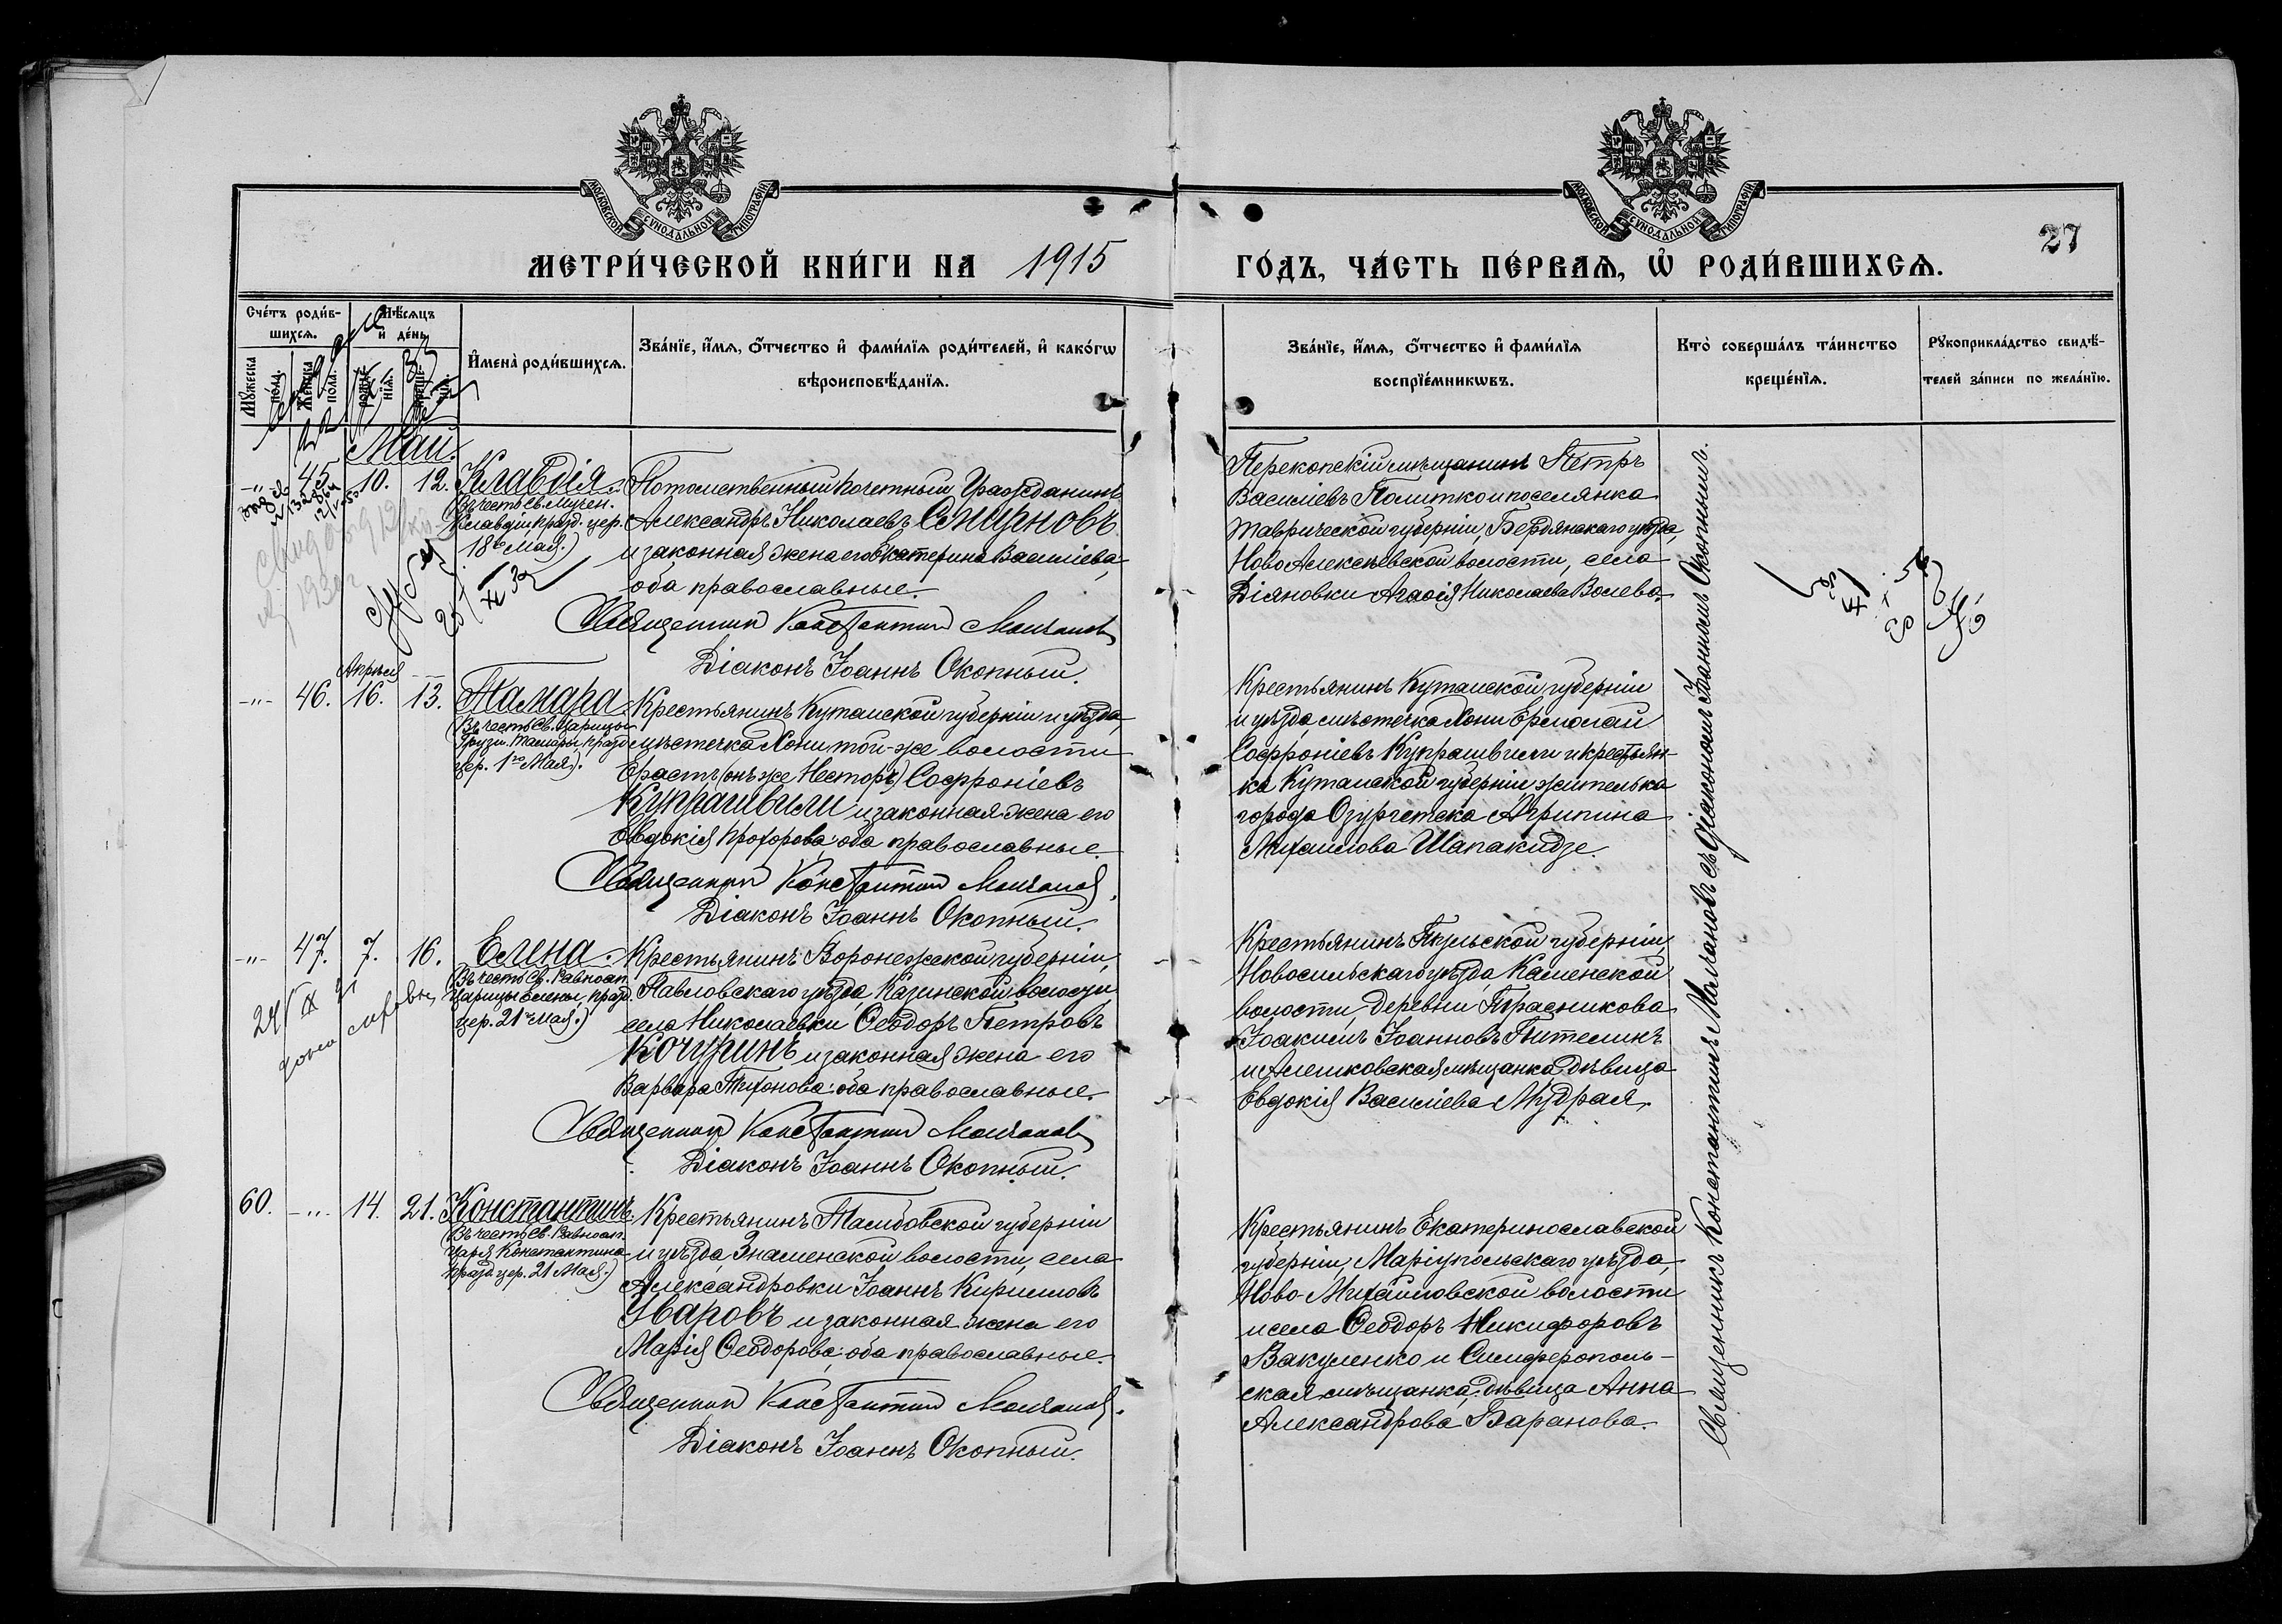 МОСКОВСКОЙ СѴНОДАЛЬНОЙ ТИПОГРАФІИ
МОСКОВСКОЙ СѴНОДАЛЬНОЙ ТИПОГРАФІИ
27
МЕТРИ́ЧЕСКОЙ КНИ́ГИ НА 1915 ГО́ДЪ, ЧА́СТЬ ПЕ́РВАѦ, Ѡ҆ РОДИ́ВШИХСѦ.
Сче́тъ роди́в-
шихсѧ.
Мѣ́сѧцъ
и҆ де́нь
Мꙋ́жеска
по́ла.
Же́нска
по́ла.
рожде́-
нїѧ.
креще́-
нїѧ.
И҆мена̀ роди́вшихсѧ.
Зва́нїе, и҆́мѧ, ѻ҆́тчество и҆ фами́лїѧ роди́телей, и҆ како́гѡ
вѣроисповѣ́данїѧ.
Зва́нїе, и҆́мѧ, ѻ҆́тчество и҆ фами́лїѧ
воспрїе́мникѡвъ.
Кто̀ соверша́лъ та́инство
креще́нїѧ.
Рꙋкоприкла́дство свидѣ́-
телей за́писи по жела́нїю.
Май.
-„- 45. 10. 12. Клавдія.
(Въ честь Св. Мучен.
Клавдіи, празд. цер.
18го Мая.)
Потомственный Почетный Гражданинъ
Александръ Николаевъ Смирновъ
и законная жена его Екатерина Василіева,
оба православные.
Священник Константин Молчанов
Діаконъ Іоаннъ Окопный.
Перекопскій мѣщанинъ Петръ
Василіевъ Политко и поселянка
Таврической губерніи, Бердянскаго уѣзда,
Ново Алексѣевской волости, села
Діяновки Агаѳія Николаева Волева.
Апрѣля
-„- 46. 16. 13. Тамара
(Въ честь Св. Царицы
Грузин. Тамары, празд
цер. 1го Мая).
Крестьянинъ Кутаиской губерніи и уѣзда,
мѣстечка Хони, той-же волости
Ерастъ (онъ же Несторъ) Софроніевъ
Купрашвили и законная жена его
Евдокія Прохорова: оба православные.
Священник Константин Молчанов
Діаконъ Іоаннъ Окопный.
Крестьянинъ Кутаиской губерніи
и уѣзда, мѣстечка Хони Ермолай
Софроніевъ Купрашвили и крестьян-
ка Кутаиской губерніи, жителька
города Озургетска Агрипина
Михаилова Шапакидзе.
-„- 47. 7. 16. Елена.
(Въ честь Св. Равноап.
Царицы Елены, празд.
цер. 21го Мая.)
Крестьянинъ Воронежской губерніи,
Павловскаго уѣзда, Казинской волости,
села Николаевки Ѳеодоръ Петровъ
Кочуринъ и законная жена его
Варвара Тихонова: оба православные.
Священник Константин Молчанов
Діаконъ Іоаннъ Окопный.
Крестьянинъ Тульской губерніи,
Новосильскаго уѣзда, Каменской
волости, деревни
Іоакимъ Іоанновъ
и Алешковская мѣщанка, дѣвица
Евдокія Василіева Мудрая.
60. -„- 14. 21. Константинъ.
(Въ честь Св. Равноап.
Царя Константина
празд. цер. 21 Мая.)
Крестьянинъ Тамбовской губерніи
и уѣзда, Знаменской волости, села
Александровки Іоаннъ Кирилловъ
Уваровъ и законная жена его
Марія Ѳеодорова; оба православные.
Священник Константин Молчанов.
Діаконъ Іоаннъ Окопный.
Крестьянинъ Екатеринославской
губерніи, Маріупольскаго уѣзда,
Ново-Михайловской волости
и села Ѳеодоръ Никифоровъ
Вакуленко и Симферополь-
ская мѣщанка, дѣвица Анна
Александрова Баранова.
Священникъ Константинъ Молчановъ съ Діакономъ Іоанномъ Окопнымъ.